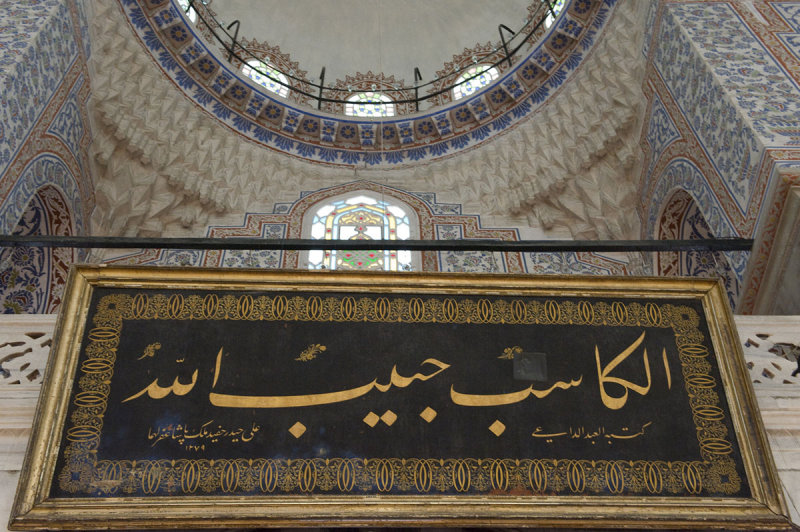 الكاسب حبيب الله
كتبه العبد الداعي
علي حيدر حفيد ملك پاشا غفرلهما
١٢٧٩